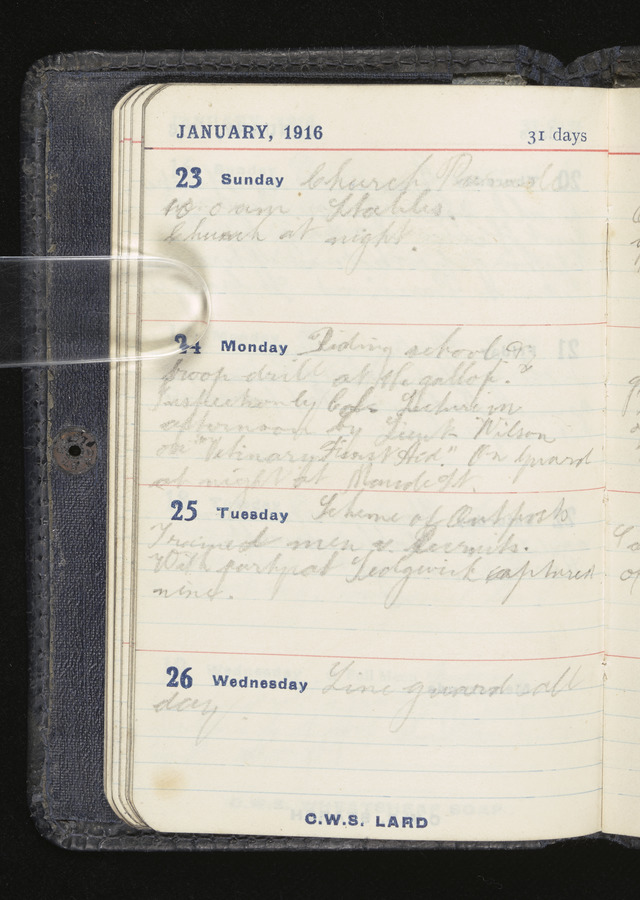 JANUARY, 1916 31 days
23 Sunday Church Parade
10 0 am Stables.
Church at night.
24 Monday Riding school &
troop drill at the gallop.
Inspection by Col. Lecture in
afternoon by Lieut Wilson
on "Vetinary First Aid." On guard
at night at
25 Tuesday Scheme of Outposts
Trained men v. Recruits.
With party at Sedgwick captured
nine.
26 Wednesday Line guard all
day
C.W.S. LARD